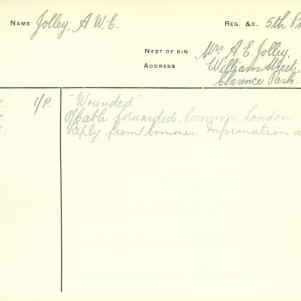 NAME Jolley, A. W. E. REG. &C. 5th
NEXT OF KIN Mrs A E Jolley,
ADDRESS William Street,
Clarence Park.
1/P. "Wounded"
Cable forwarded Commrs London
Reply from Commr. Information